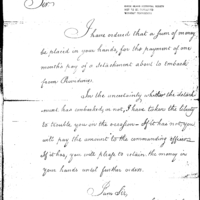 Sir
I have ordered that a sum of money
be placed in your hands, for the payment of one
months pay of a detachment about to embark
from Providence.
In the uncertainty whether the detach
ment has embarked or not, I have taken the liberty
to trouble you on the occasion. If it has not you
will pay the amount to the commanding officer.
If it has, you will please to retain the money in
your hands until further orders.
I am Sir,